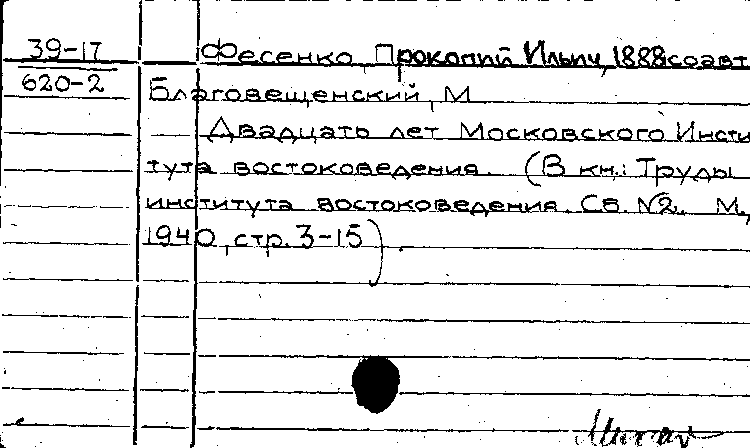 39-17
620-2
Фесенко, Прокопий Ильич, 1888 соавт
Благовещенский, М
Двадцать лет Московского Инсти
тута востоковедения. (В кн.: Труды
института востоковедения. Сб. №2. М,
1940, стр. 3-15).